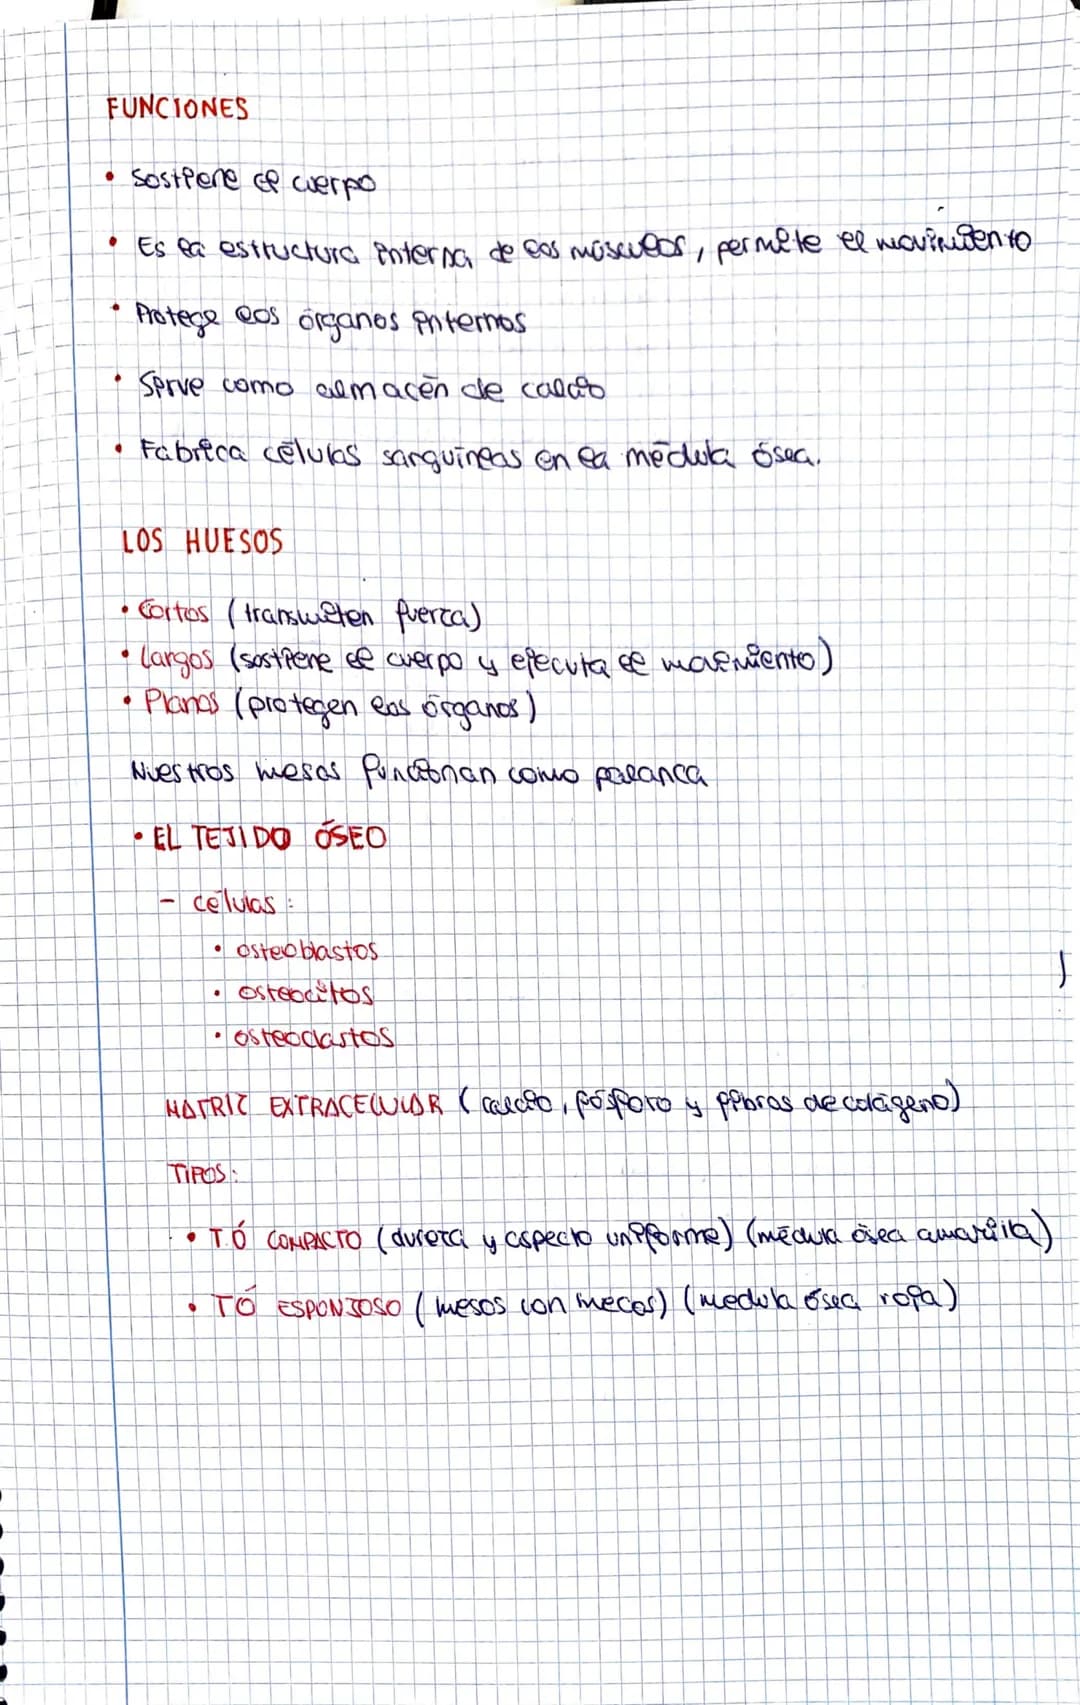 FUNCIONES
• Sostiene el cuerpo
• Es la estructura interna de los músculos, permite el movimiento
• Protege los órganos internos
• Sirve como almacén de calcio
• Fabrica células sanguíneas en la médula ósea.
LOS HUESOS
• Cortos (transmiten fuerza)
• Largos (sostiene el cuerpo y ejecuta el movimiento)
• Planos (protegen los órganos)
Nuestros huesos funcionan como palanca
• EL TEJIDO ÓSEO
- células:
• osteoblastos
• osteocitos
• osteoclastos
MATRIZ EXTRACELULAR (calcio, fósforo y fibras de colágeno)
TIPOS:
• T.Ó COMPACTO (dureza y aspecto uniforme) (médula ósea amarilla)
• TÓ ESPONJOSO (huesos con huecos) (medula ósea roja)